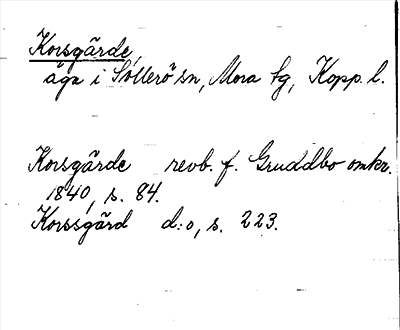 Korsgärde,
äga i Sollerö sn, Mora tg, Kopp. l.
Korsgärde revb. f. Gruddbo omkr.
1840, s. 84.
Korssgärd d:o, s. 223.